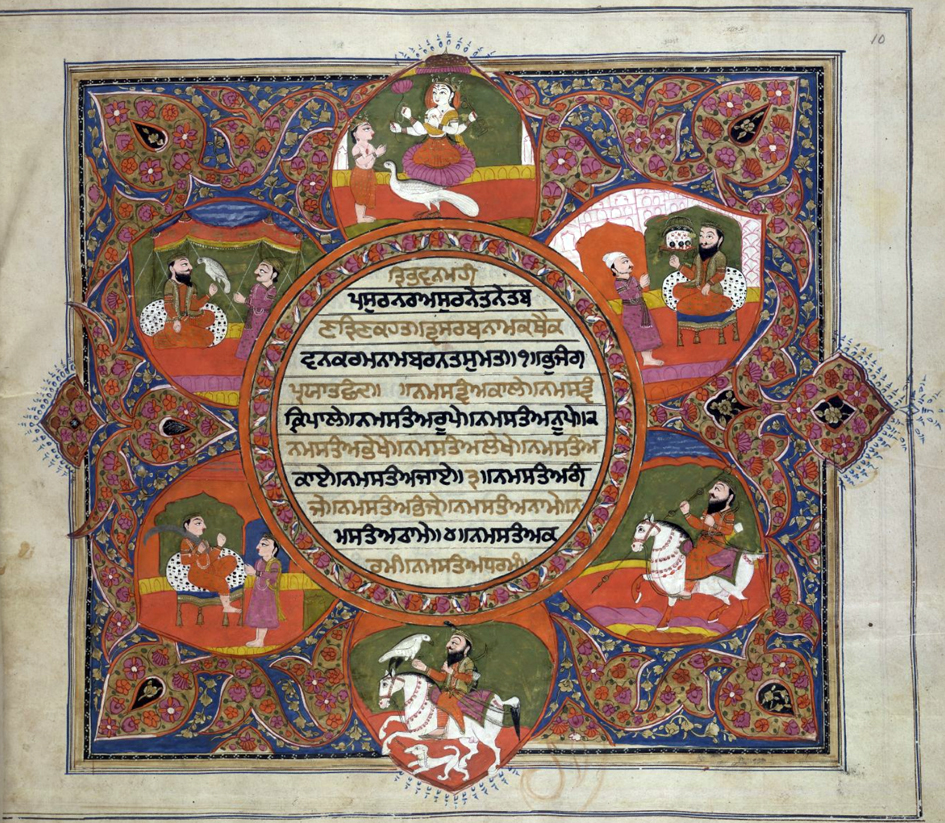 10
ਤ੍ਰਿਭਵਨਮਹੀ
ਪਸੁਰਨਰਅਸੁਰਨੇਤਨੇਤਬ
ਣਤ੍ਰਿਣਕਹਤ॥ਤ੍ਵਸਰਬਨਾਮਕਥੈਕ
ਵਨਕਰਮਨਾਮਬਰਨਤਸੁਮਤ॥੧॥ਭੁਜੰਗ
ਪ੍ਰਯਾਤਛੰਦ॥ ॥ਨਮਸਤ੍ਵੰਅਕਾਲੇ॥ਨਮਸਤ੍ਵੰ
ਕ੍ਰਿਪਾਲੇ॥ਨਮਸਤੰਅਰੂਪੇ॥ਨਮਸਤੰਅਨੂਪੇ॥
ਨਮਸਤੰਅਭੇਖੇ॥ਨਮਸਤੰਅਲੇਖੇ॥ਨਮਸਤੰਅ
ਕਾਏ॥ਨਮਸਤੰਅਜਾਏ॥੩॥ਨਮਸਤੰਅਗੰ
ਜੇ॥ਨਮਸਤੰਅਭੰਜੇ॥ਨਮਸਤੰਅਨਾਮੇ॥ਨ
ਮਸਤੰਅਠਾਮੇ॥੪॥ਨਮਸਤੰਅਕ
ਰਮੰ॥ਨਮਸਤੰਅਧਰਮੰ